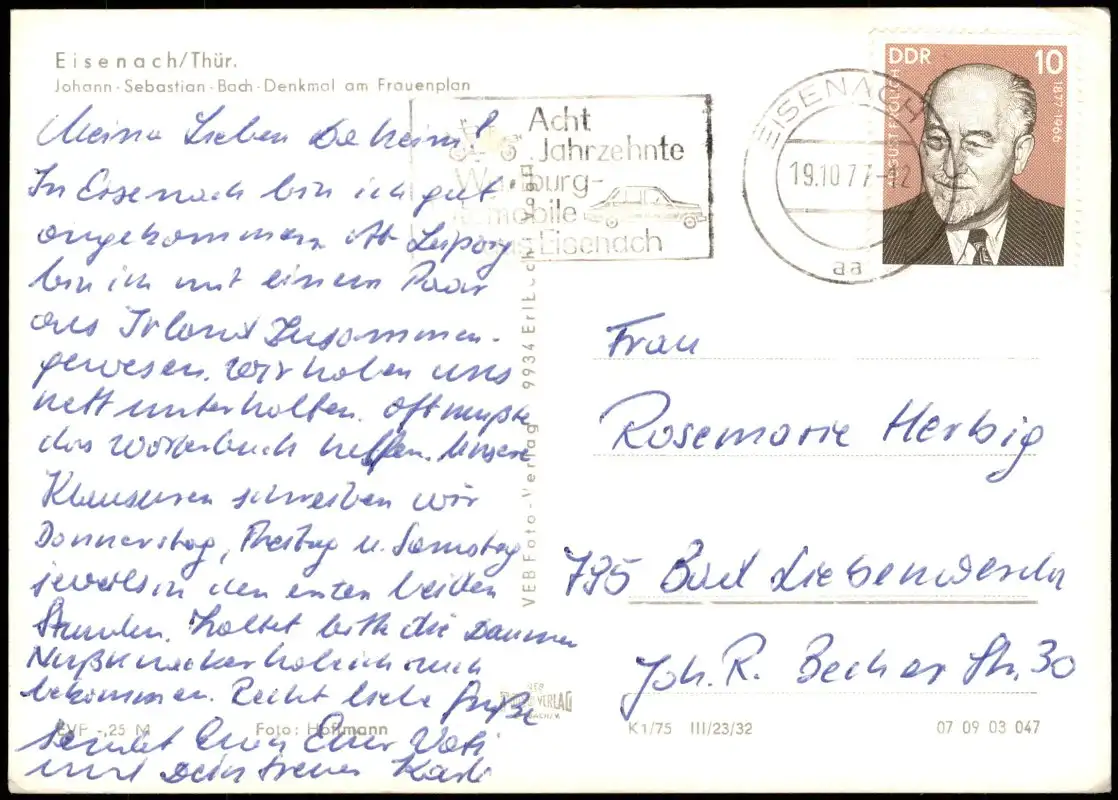 Eisenach/Thür.
Johann-Sebastian-Bach-Denkmal am Frauenplan
Meine Lieben Daheim!
In Eisenach bin ich gut
angekommen. Ab Leipzig
bin ich mit einem Paar
aus Irland zusammen-
gewesen. Wir haben uns
nett unterhalten. Oft mußte
das Wörterbuch helfen. Unsere
Klausuren schreiben wir
Donnerstag, Freitag u. Samstag
jeweils in den ersten beiden
Stunden. Haltet bitte die Daumen
Nußknacker hab ich auch
bekommen. Recht liebe Grüße
sendet Euch Euer Vati
und Dein treuer Karli
EVP -,25 M Foto: Hoffmann
VEB Foto-Verlag 9934 Erlbach Vogtl
Acht
Jahrzehnte
Wartburg-
automobile
aus Eisenach
EISENACH
19.10.77-12
aa
DDR 10
1877-1966
Frau
Rosemarie Herbig
795 Bad Liebenwerda
Joh. R. Becher Str. 30
VEB
FOTO VERLAG
K1/75 III/23/32 07 09 03 047